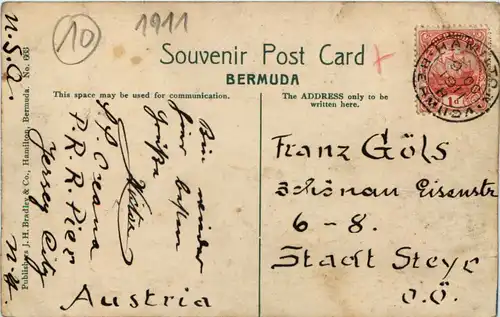 10
1911
Souvenir Post Card
BERMUDA
This space may be used for communication.
The ADDRESS only to be
written here.
HAMILTON
BERMUDA
Bin wieder
hier besten
Grüße
S/S Oceana
P. R. R. Pier
Jersey City
N. Y.
U. S. A.
Austria
Franz Göls
Schönau Eisenstr
6 - 8.
Stadt Steyr
O. Ö.
Publishers J. H. Bradley & Co., Hamilton, Bermuda. No. 663